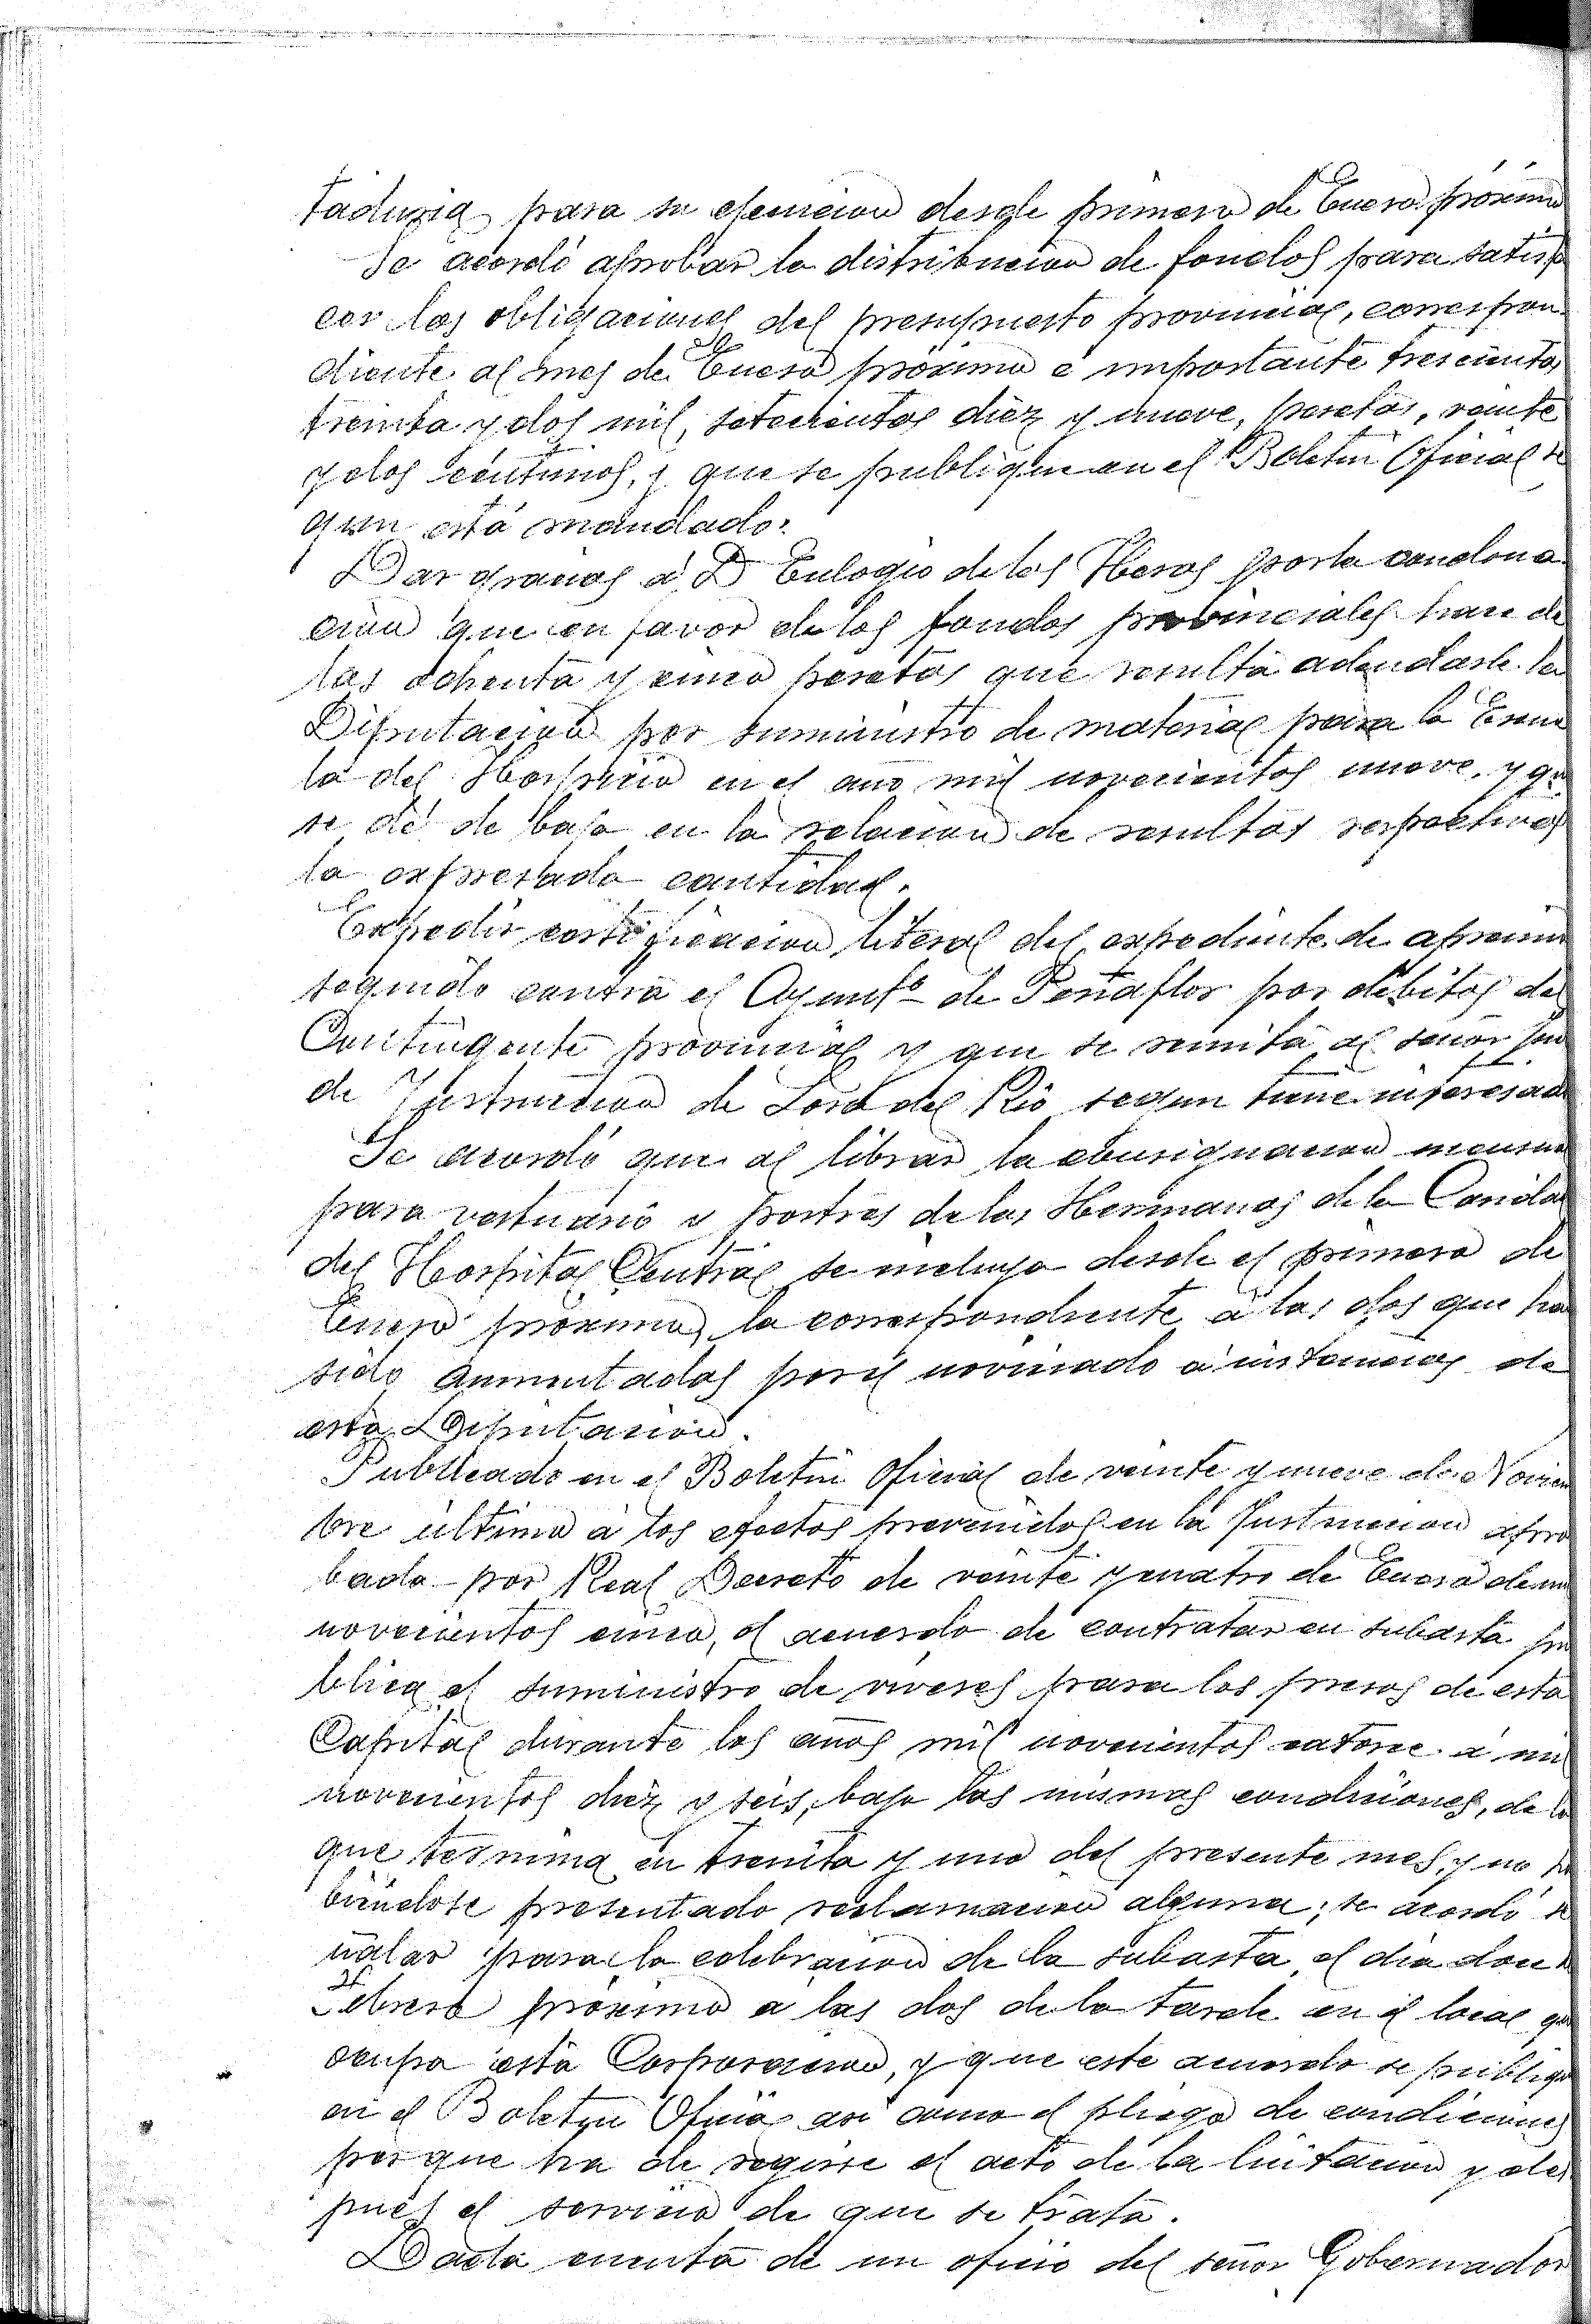 taduria para su ejecucion desde primero de Enero próximo
Se acordó aprobar la distribucion de fondos para satisfa
cer las obligaciones del presupuesto provincial, correspon
diente al mes de Enero próximo é importante trescientas
treinta y dos mil, setecientas diez y nueve, pesetas, veinte
y dos centimos, y que se publique en el Boletin Oficial se
gun está mandado.
Dar gracias á D Eulogio de las Heras por la condona
cion que en favor de los fondos provinciales hace de
las ochenta y cinco pesetas que resulta adeudarle la
Diputacion por suministro de material para la Escue
la del Hospicio en el año mil novecientos nueve, y que
se dé de baja en la relacion de resultas respectivas
la expresada cantidad.
Expedir certificacion literal del expediente de apremio
seguido contra el Ayuntº de Peñaflor por débitos del
Contingente provincial y que se remita al señor Juez
de Instruccion de Lora del Rio segun tiene interesado
Se acordó que al librar la consignacion mensual
para vestuario y postres de las Hermanas de la Caridad
del Hospital Central se incluya desde el primero de
Enero próximo, la correspondiente á las dos que han
sido aumentadas por el noviciado á instancias de
esta Diputacion.
Publicado en el Boletin Oficial de veinte y nueve de Noviem
bre último á los efectos prevenidos en la Instruccion apro
bada por Real Decreto de veinte y cuatro de Enero de mil
novecientos cinco, el acuerdo de contratar en subasta pú
blica el suministro de viveres para los presos de esta
Capital durante los años mil novecientos catorce á mil
novecientos diez y seis, bajo las mismas condiciones, de la
que termina en treinta y uno del presente mes, y no ha
biendose presentado reclamacion alguna; se acordó se
ñalar para la celebracion de la subasta, el dia doce de
Febrero próximo a las dos de la tarde en el local que
ocupa esta Corporacion, y que este acuerdo se publique
en el Boletin Oficial asi como el pliego de condiciones
por que ha de regirse el acto de la licitacion y des
pués el servicio de que se trata.
Dada cuenta de un oficio del señor Gobernador